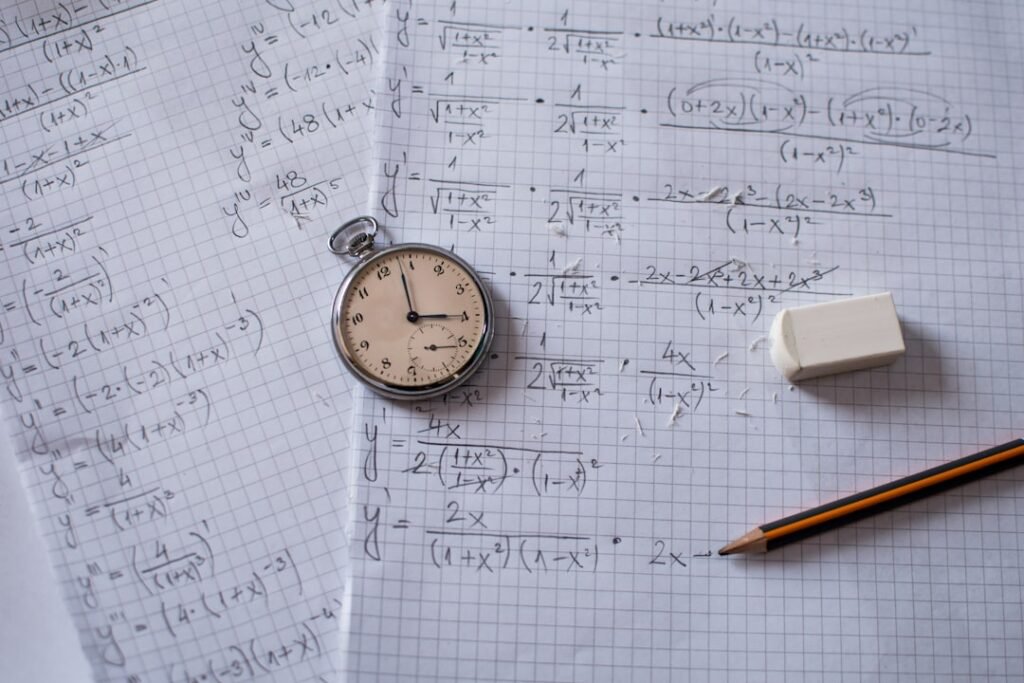 (1+x)²
(1+x) - ((1-x)·1)
(1+x)²
1-x-1+x
(1+x)²
-2
(1+x)²
= (-2/(1+x)²)'
y'' = (-2(1+x)⁻²)'
y'' = (-2·(-2)(1+x)⁻³)
y'' = (4(1+x)⁻³)
y'' = 4/(1+x)³
y''' = (4/(1+x)³)'
y''' = (4·(1+x)⁻³)'
·(-3)(1+x)⁻⁴
(-12(1
= (-12·(-4)
= (48(1+x
= 48/(1+x)⁵
y' = 1/√((1+x²)/(1-x²)) · 1/(2√((1+x²)/(1-x²))) · ((1+x²)'·(1-x²)-(1+x²)·(1-x²)')/(1-x)²
y' = 1/√((1+x²)/(1-x²)) · 1/(2√((1+x²)/(1-x²))) · ((0+2x)(1-x²)-(1+x²)·(0-2x))/(1-x²)²
y' = 1/√((1+x²)/(1-x²)) · 1/(2√((1+x²)/(1-x²))) · (2x-2x³-(2x-2x³))/(1-x²)²
· 1/(2√((1+x²)/(1-x²))) · (2x-2x³+2x+2x³)/(1-x²)²
1-x² · 1/(2√((1+x²)/(1-x²))) · 4x/(1-x²)²
y' = 4x/(2·((1+x²)/(1-x²))·(1-x²)²)
y' = 2x/((1+x²)(1-x²)) · 2x -
12 1 2 3 4 5 8 9 10 11